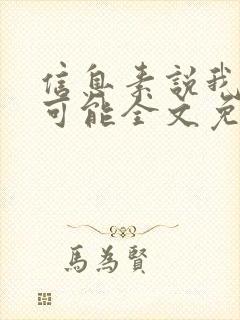 信息素說我
可能全文免
馬為賢